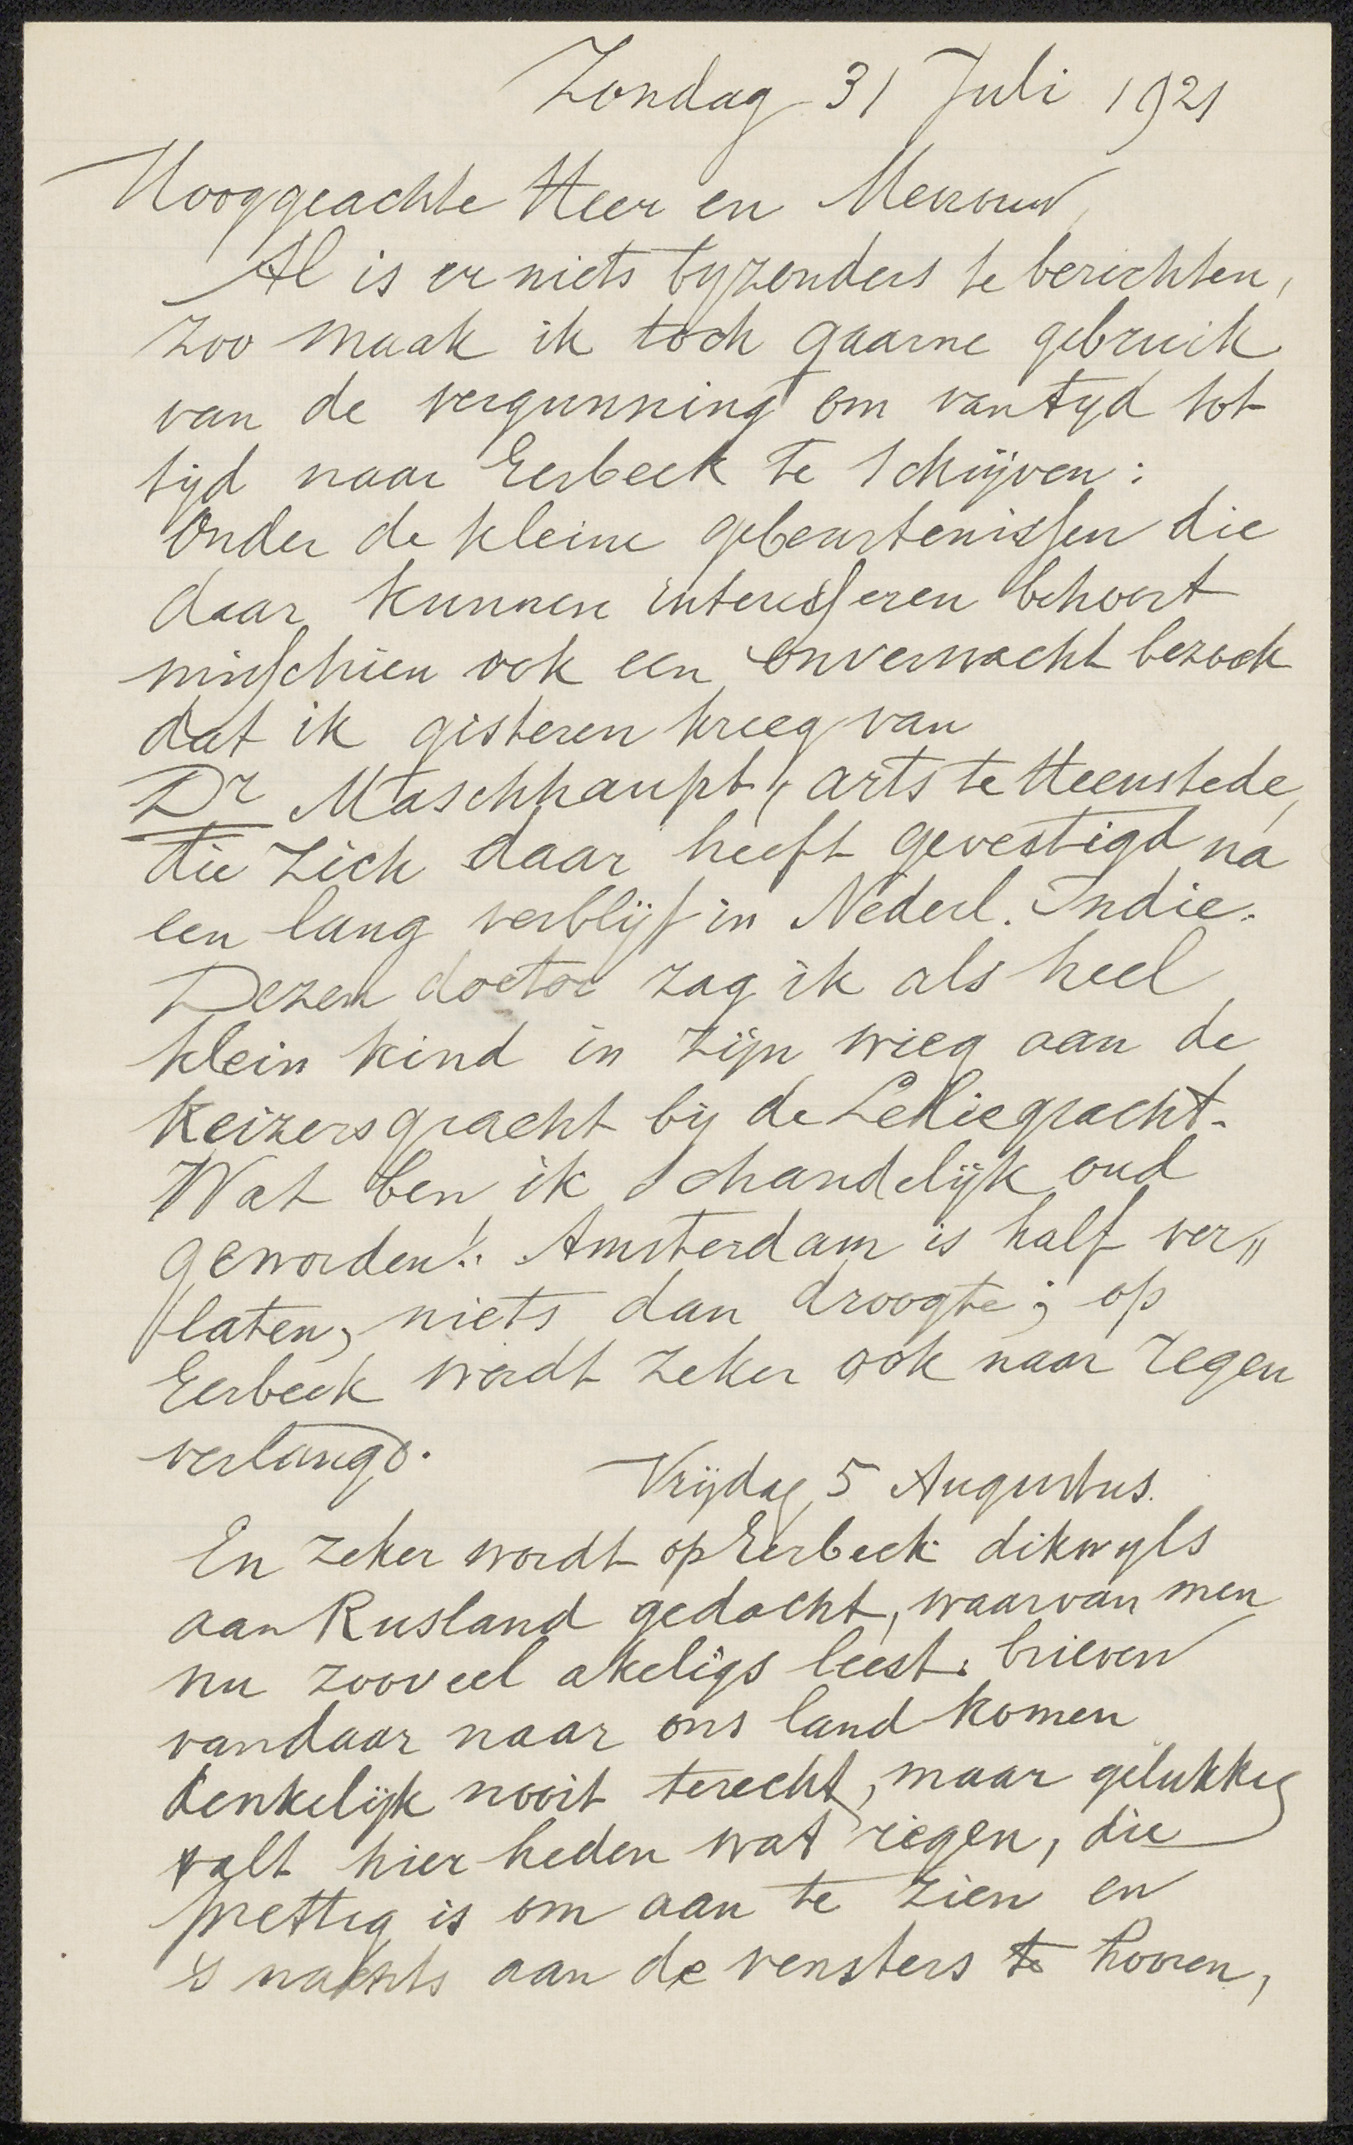 Zondag 31 Juli 1921
Hooggeachte Heer en Mevrouw,
Al is er niets byzonders te berichten,
zoo maak ik toch gaarne gebruik
van de vergunning om van tyd tot
tijd naar Eerbeek te schrijven:
Onder de kleine gebeurtenissen die
daar kunnen interesseren behoort
misschien ook een onverwacht bezoek
dat ik gisteren kreeg van
Dr Maschhaupt, arts te Heemstede,
die zich daar heeft gevestigd na
een lang verblijf in Nederl. Indie.
Dezen doctor zag ik als heel
klein kind in zijn wieg aan de
Keizersgracht bij de Leliegracht.
Wat ben ik schandelijk oud
geworden!. Amsterdam is half ver„
laten, niets dan droogte; op
Eerbeek wordt zeker ook naar regen
verlangd.
Vrijdag 5 Augustus.
En zeker wordt op Eerbeek dikwyls
aan Rusland gedacht, waarvan men
nu zooveel akeligs leest. brieven
vandaar naar ons land komen
denkelijk nooit terecht, maar gelukkig
valt hier heden wat regen, die
prettig is om aan te zien en
's nachts aan de vensters te hooren,